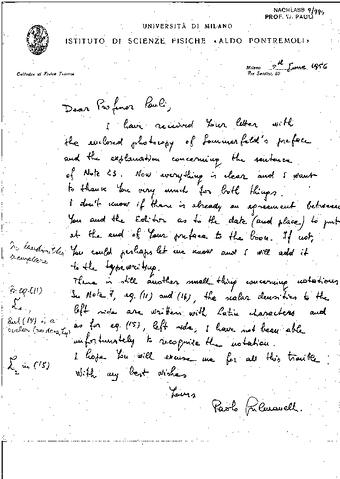 NACHLASS
PROF. W. PAULI
UNIVERSITÀ DI MILANO
ISTITUTO DI SCIENZE FISICHE «ALDO PONTREMOLI»
Cattedra di Fisica Teorica
Milano June 1956
Via Saldini, 50
Dear Professor Pauli,
I have received Your letter with
the enclosed photocopy of Sommerfeld's preface
and the explanation concerning the sentence
of Note 23. Now everything is clear and I want
to thank You very much for both things.
I don't know if there is already an agreement between
You and the Editors as to the date (and place) to put
at the end of Your preface to the book. If not,
You could perhaps let me know and I will add it
to the typewriting.
There is still another small thing concerning notations
In Note 7, eq. (11) and (14), the scalar densities to the
left side are written with Latin characters and
as for eq. (15), left side, I have not been able
unfortunately to recognize the notation.
I hope You will excuse me for all this trouble.
With my best wishes
Yours
Paolo
In
exemplare
For eq. (11)
But (14) is a
in (15)